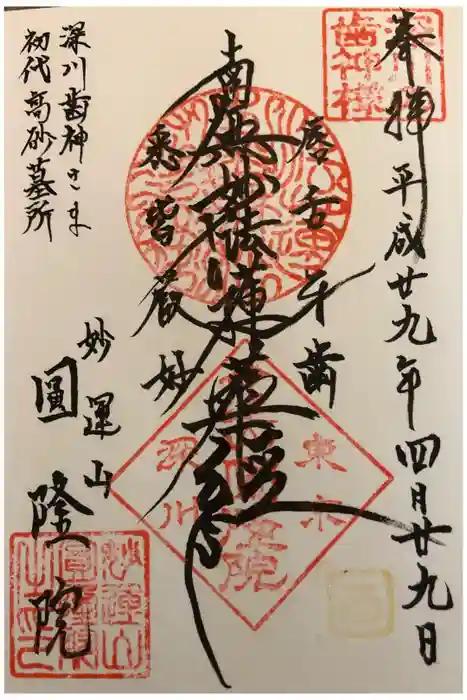 奉拝 平成廿九年四月廿九日
深川歯神様
唇舌牙歯
南無妙法蓮華経
悉皆厳妙
東京
深川
妙運山
圓隆院
深川歯神さま
初代高砂墓所